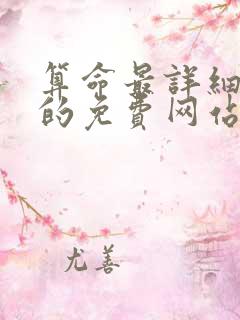 算命最詳細
的免費网佔
尤善